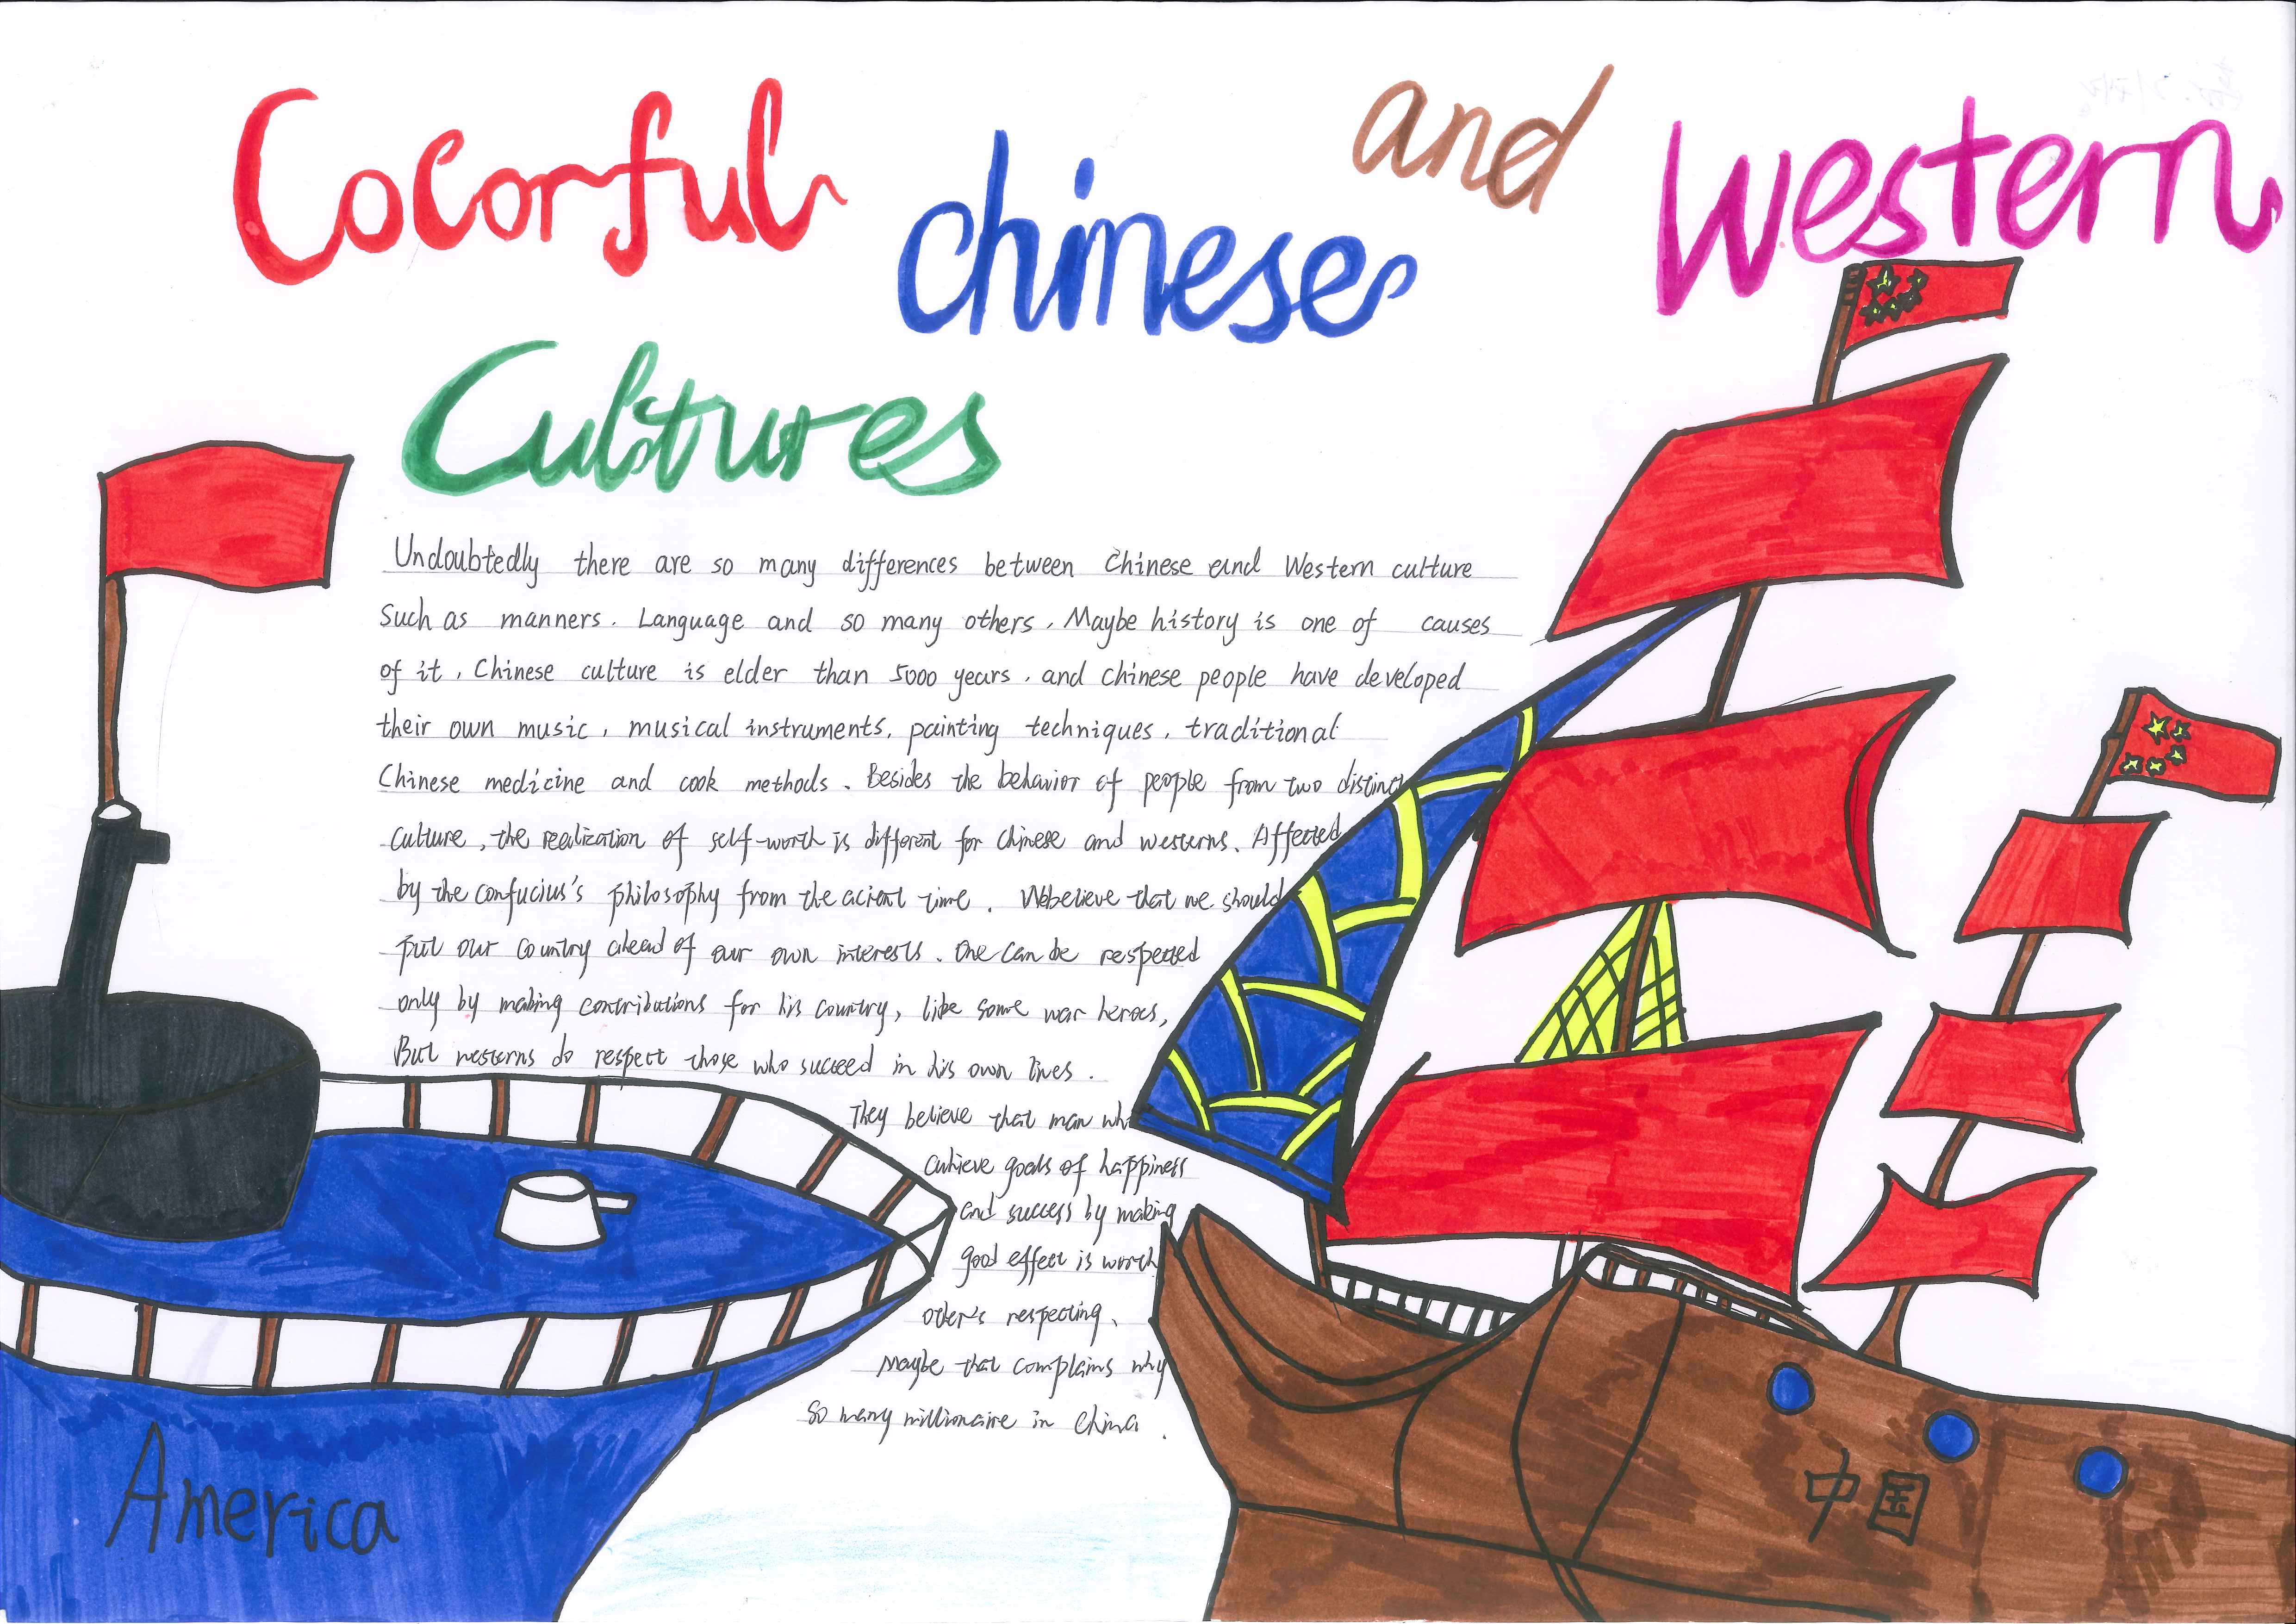 Colorful chinese and Western
Cultures
Undoubtedly there are so many differences between Chinese and Western culture
Such as manners. Language and so many others. Maybe history is one of causes
of it, Chinese culture is elder than 5000 years, and Chinese people have developed
their own music, musical instruments, painting techniques, traditional
Chinese medicine and cook methods. Besides the behavior of people from two distinct
culture, the realization of self-worth is different for Chinese and westerns. Affected
by the confucius's philosophy from the acient time. We believe that we should
put our country ahead of our own interests. One can be respected
only by making contributions for his country, like some war heroes,
But westerns do respect those who succeed in his own lives.
They believe that man who
achieve goals of happiness
and success by making
good effect is worth
other's respecting.
Maybe that complains why
so many millionaire in China.
America
中国